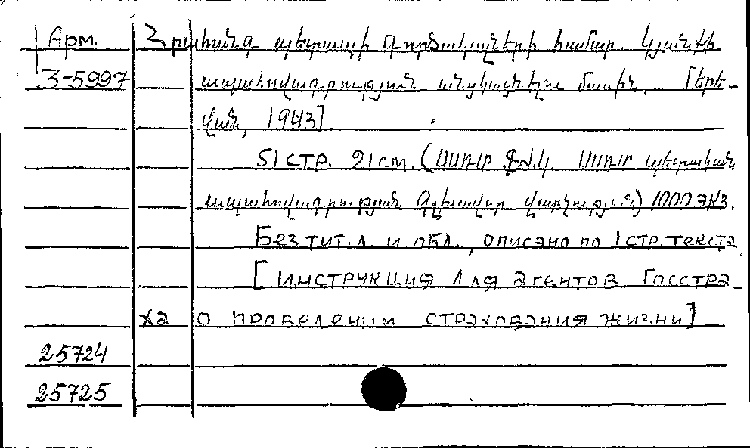 Арм. Հրահանգ պետապի գործակալների համար. Կյանքի
3-5997 ապահովագրություն անցկացնելու մասին. [Երե-
վան, 1943]
51 стр. 21 cm. (ՍՍՌՄ ՖԺԿ. ՍՍՌՄ պետական
ապահովագրության Գլխավոր վարչություն) 1000 экз.
Без тит. л. и обл., описано по 1 стр. текста
[Инструкция для агентов Госстра-
ха о проведении страхования жизни]
25724
25725